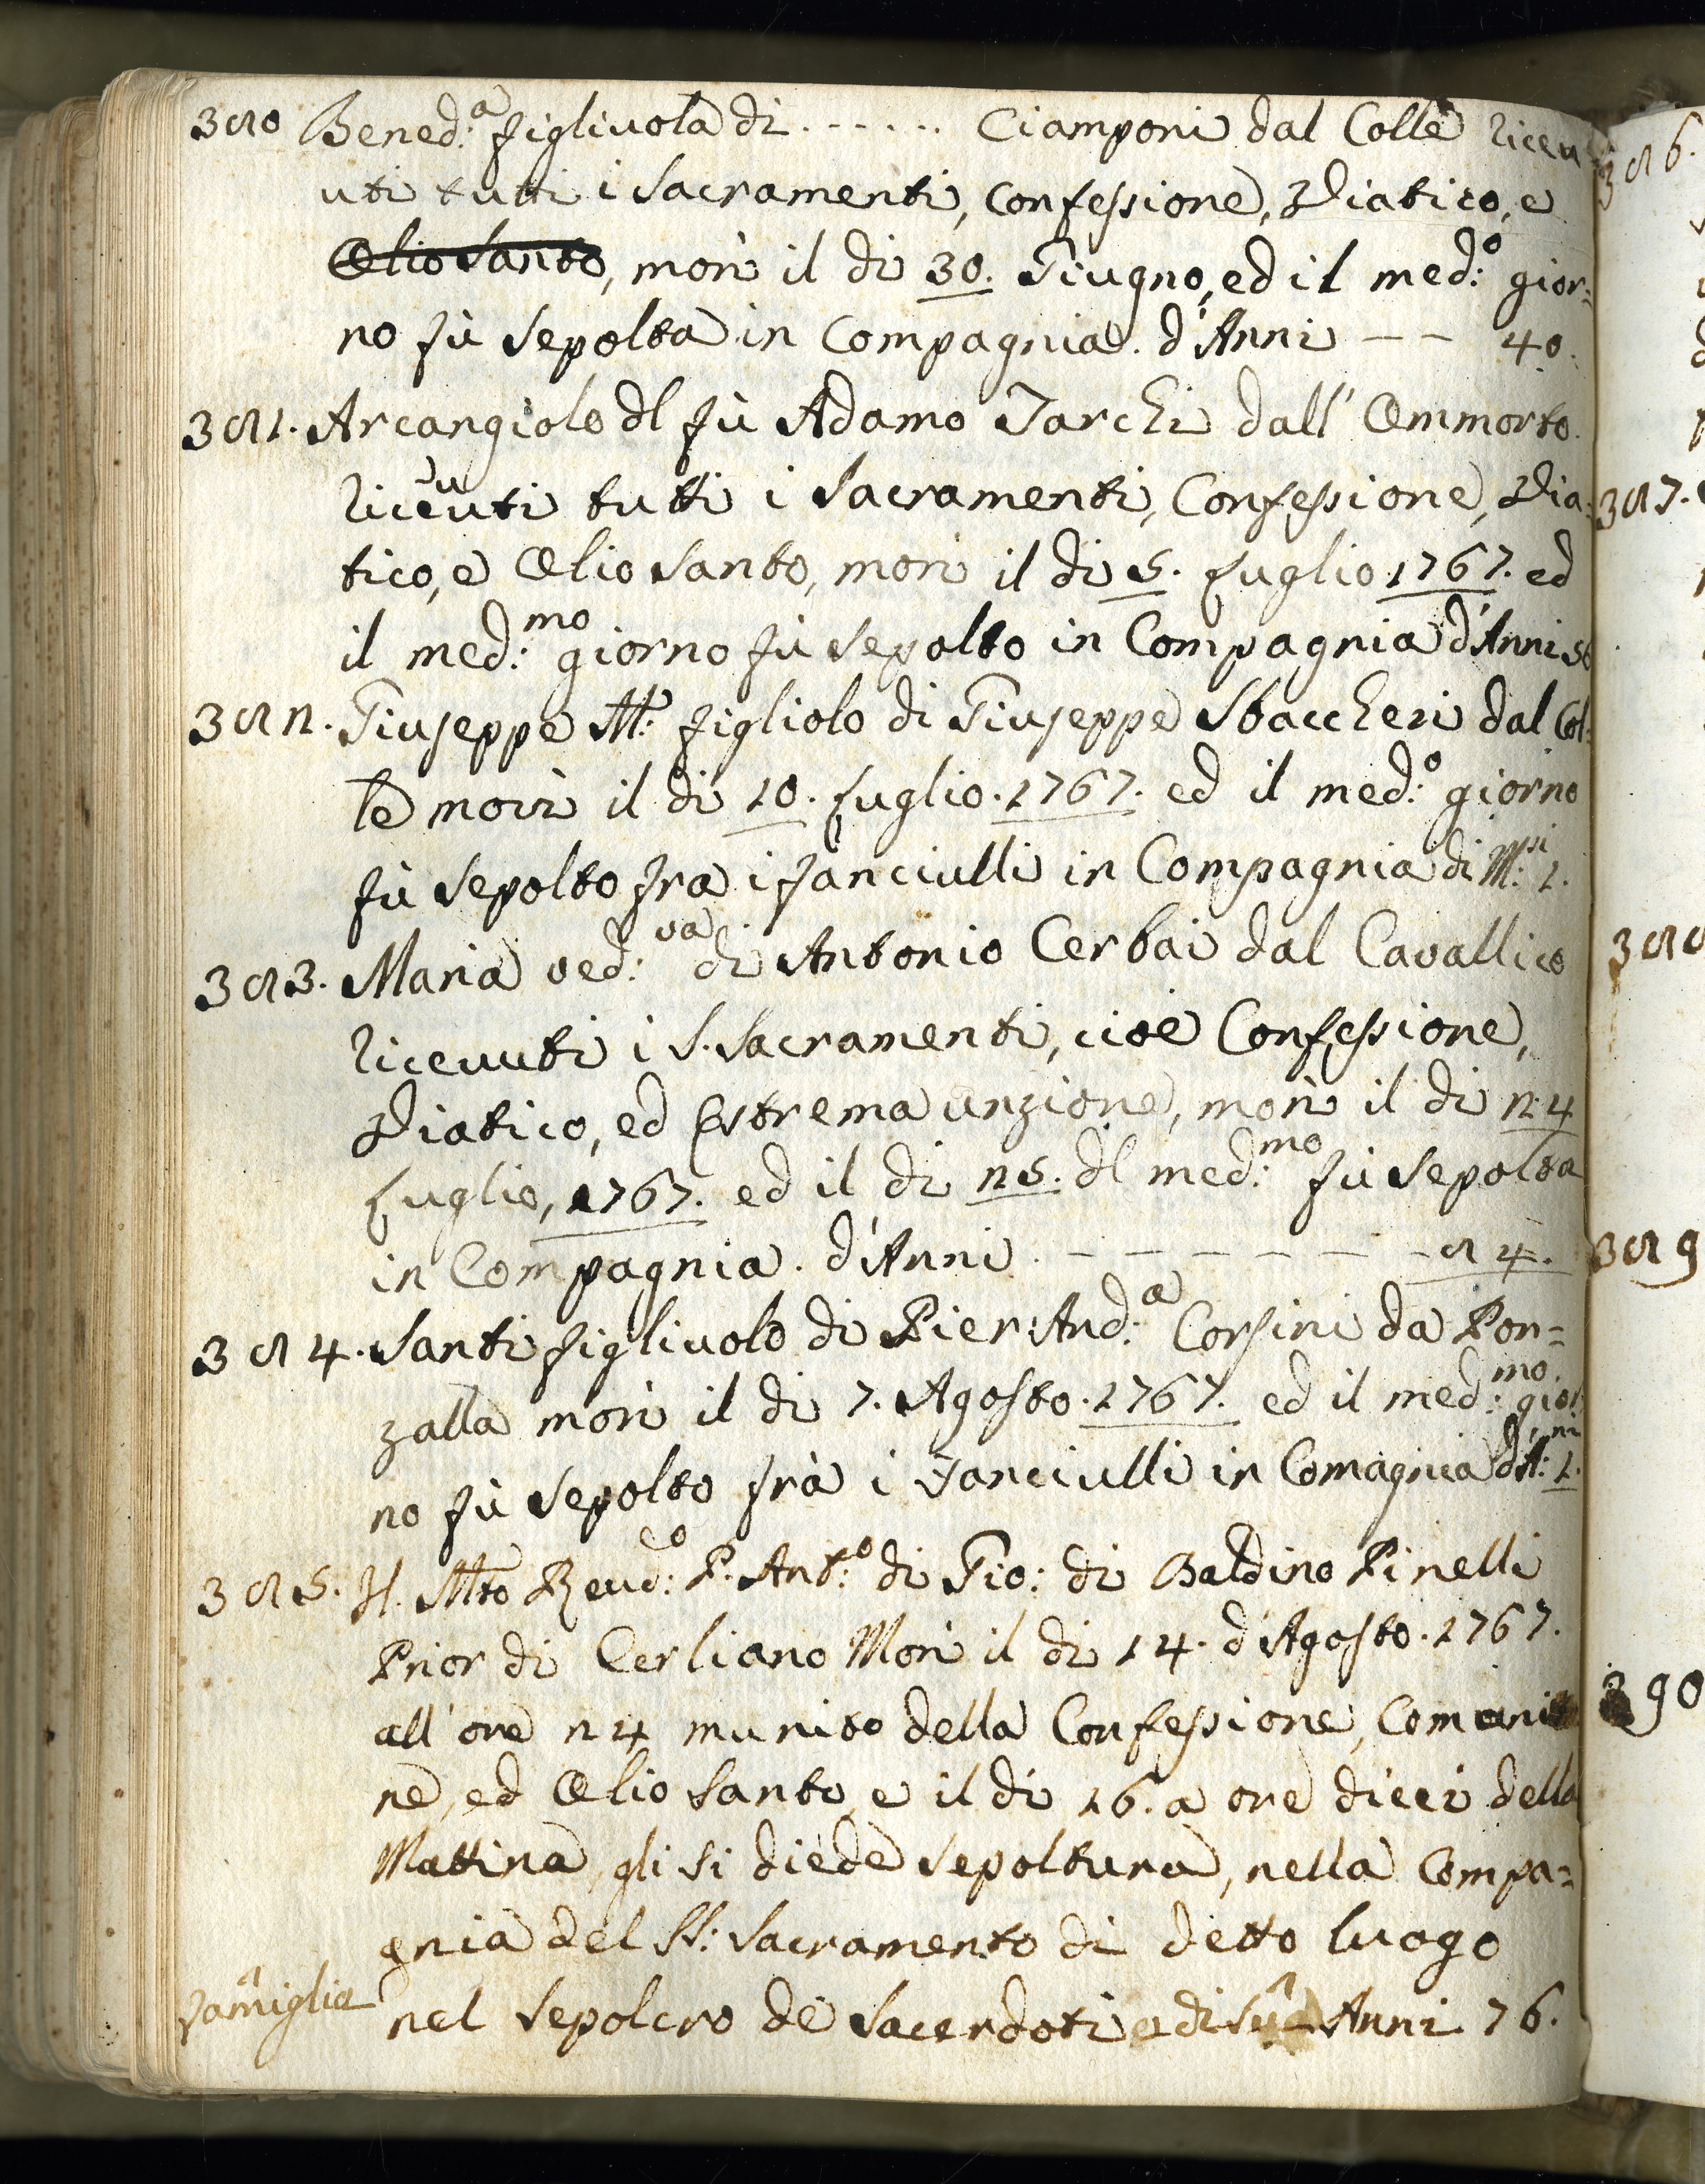 380 Bened:a figlivola di ....... Ciamponi dal Colle riceu
uti tutti i Sacramenti, Confessione, Viatico, e
Olio Santo, morì il di 30. Giugno, ed il med:o gior=
no fù Sepolta in Compagnia. d'Anni -- 40.
381. Arcangiolo dl fù Adamo Tarchi dall' Ommorto.
riceuuti tutti i Sacramenti, Confessione, Via=
tico, e Olio Santo, morì il di 5. Luglio 1767. ed
il med:mo giorno fù Sepolto in Compagnia d'Anni
382. Giuseppe M:a figliolo di Giuseppe Sbaccheri dal Col=
le morì il di 10. Luglio. 1767. ed il med:o giorno
fù Sepolto fra i fanciulli in Compagnia di M:si 1.
383. Maria ved:va di Antonio Cerbai dal Cavallico
riceuuti i S. Sacramenti, cioè Confessione,
Viatico, ed Estrema unzione, morì il di 24
Luglio, 1767. ed il di 25. dl med:mo fù Sepolta
in Compagnia. d'Anni ------- 84.
384. Santi figlivolo di Pier: And:a Corsini da Pon=
zalla morì il di 7. Agosto. 1767. ed il med:mo gior
no fù Sepolto frà i Fanciulli in Comagnia d'A:ni 1.
385. Il Mto Reud:o P. Ant:o di Gio: di Baldino Pinelli
Prior di Cerliano Morì il di 14. d'Agosto. 1767.
all' ore 24 munito della Confessione, Comunio
ne, ed Olio Santo, e il di 16. a ore dieci della
Mattina, gli si diede Sepoltura, nella Compa=
gnia del SS: Sacramento di detto luogo
nel Sepolcro de Sacerdoti e di sua ^ Anni 76.
^ famiglia
386.
387.
388
389
390